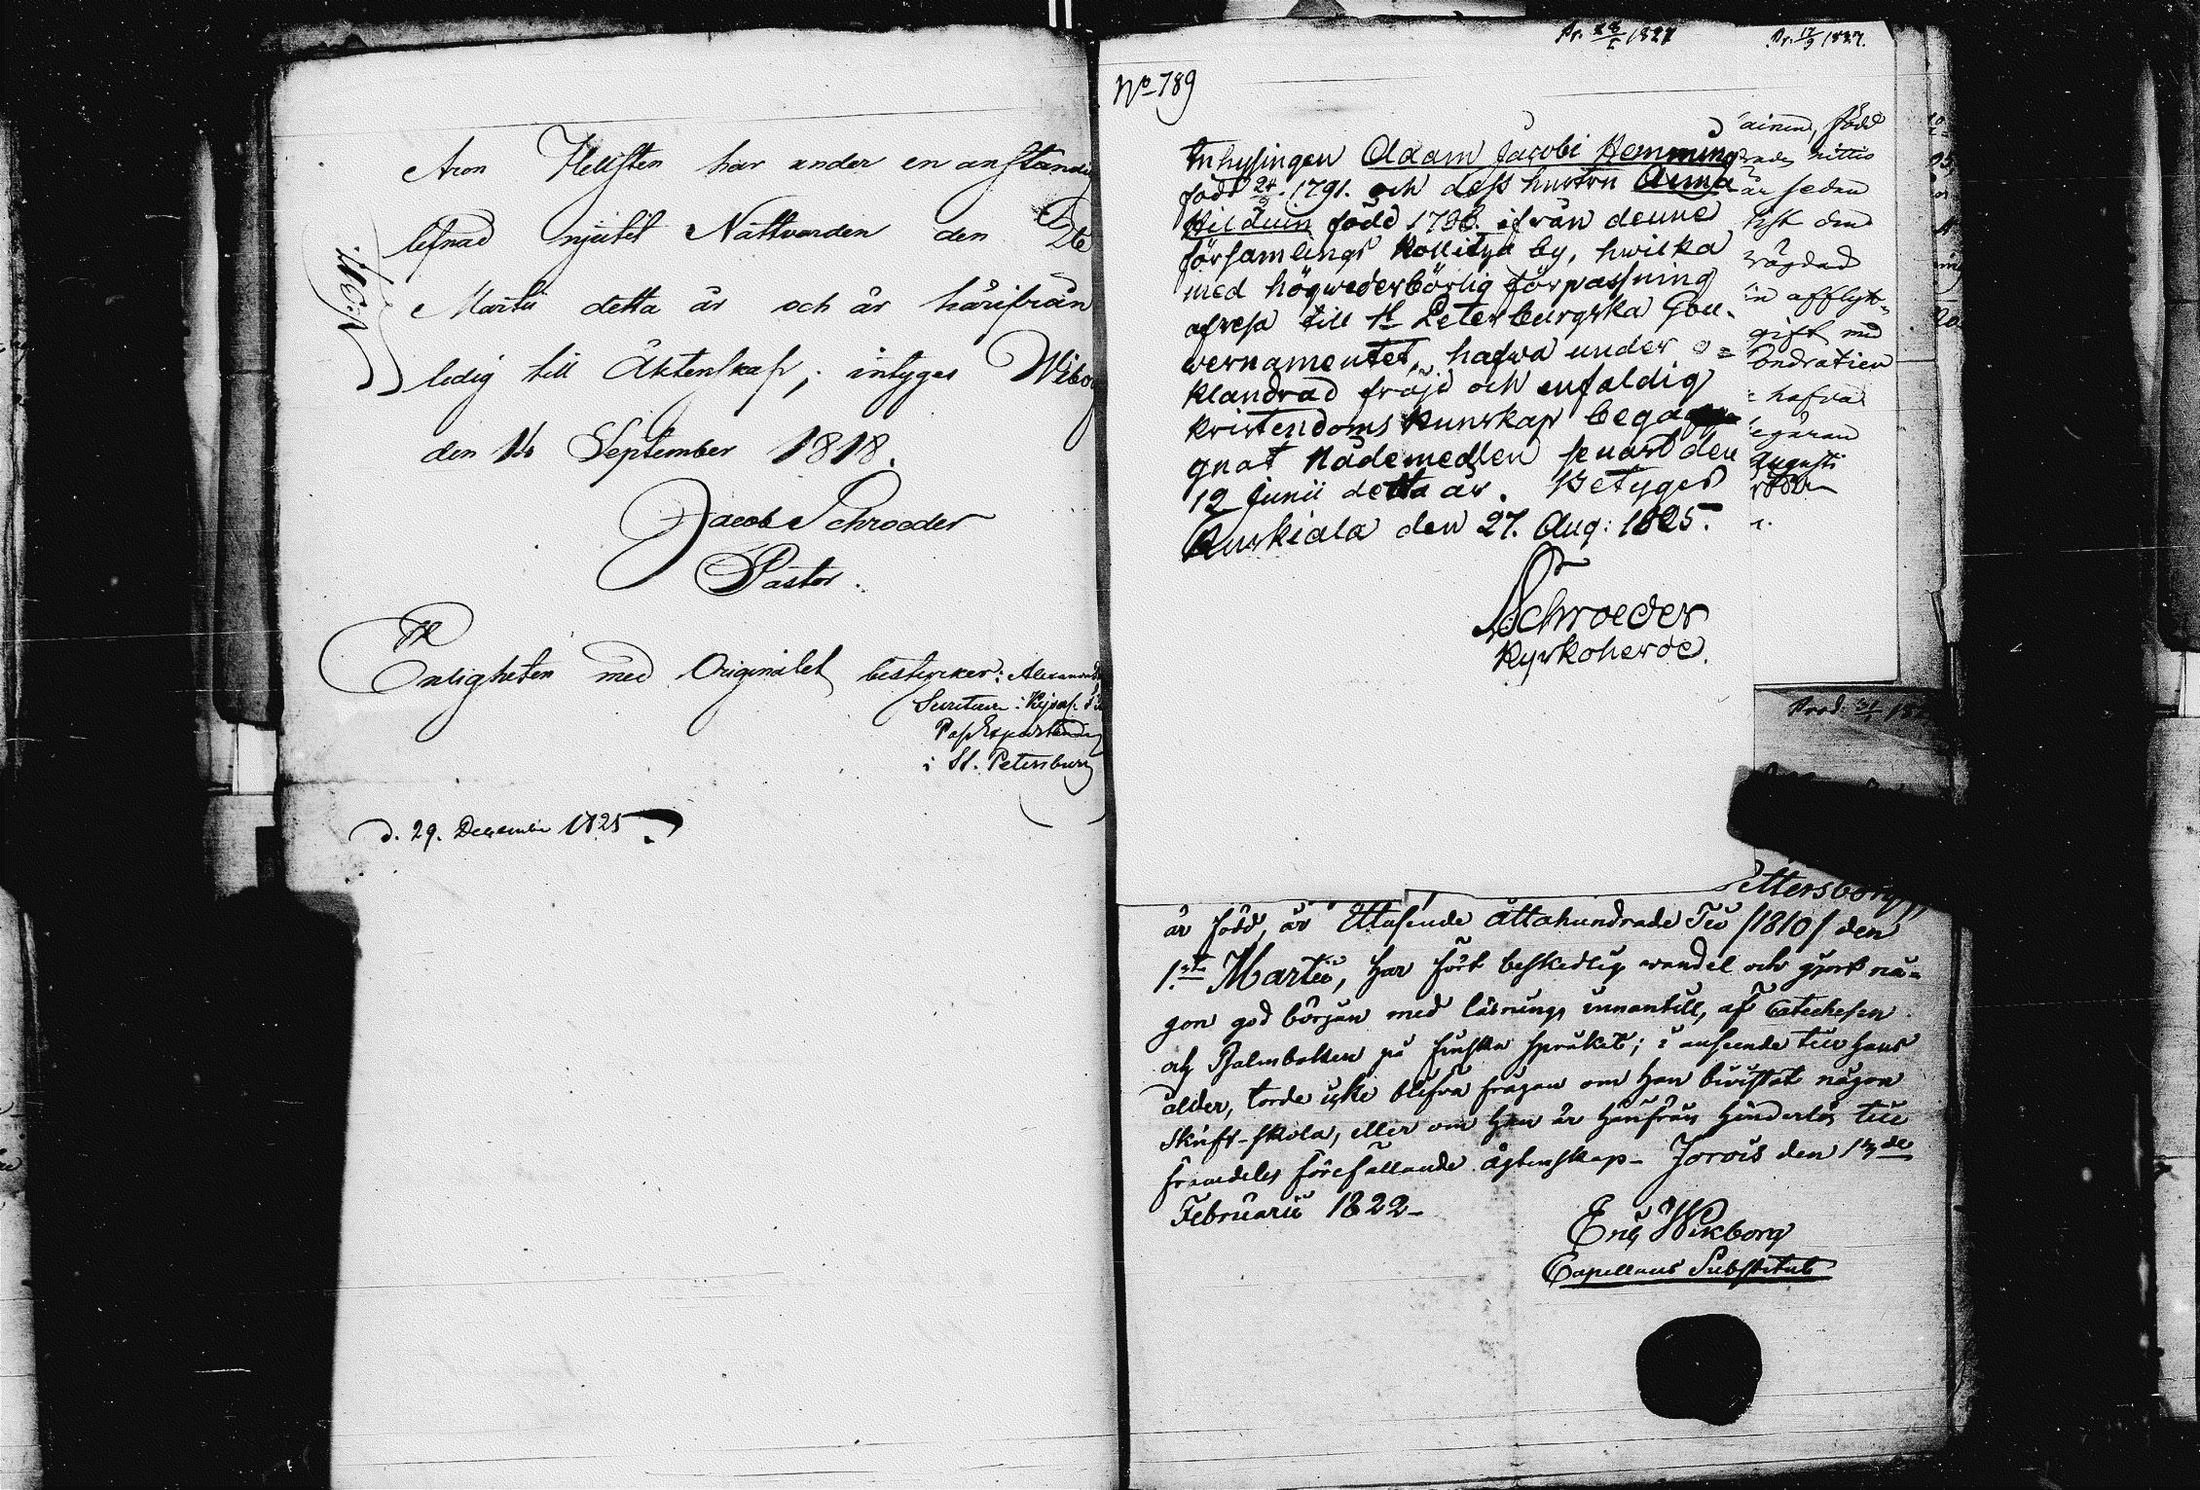 Aron Hellsten har under en anständig
lefnad njutit Nattvarden den
Martii detta år och är härifrån
ledig till Äktenskap; intygas Wiborg
den 16 September 1818.
Jacob Schroeder
Pastor.
Enligheten med Originalet bestyrker: Alexander
i St. Petersburg
d. 29. December 1825
No 789
Pr. 1827
Pr. 17/9 1827.
Inhysingen Adam Jacobi Hemming
född 24/9 1791. och dess hustru Anna
född 179 ifrån denne
församlings by, hwilka
med högwederbörlig förpassning
afresa till St Petersburgska Gou-
vernamentet, hafva under o=
klandrad fräjd och enfaldig
kristendoms kunskap bega
gnat Nådemedlen senast den
12 Junii detta år. Betygas
Ruskiala den 27. Aug: 1825.
Schroeder
Kyrkoherde.
ainen, född
nittio
år sedan
afflytt=
gift med
ondratien
hafva
egäran
Augusti
Prod: 31/1
Pettersborg,
är född, år Ettusende åttahundrade Tio /1810/ den
1.sta Martii, har fört beskedlig wandel och gjort nå=
gon god början med läsning innantill, af Catechesen
och Psalmboken på finska språket; i anseende till hans
ålder, torde icke blifva frågan om han biwistat någon
Skrift-skola, eller om han är härifrån hinderlös till
framdeles förefallande ägtenskap. Jorois den 13de
Februarii 1822-
Eric Wikborg
Capellans Substitut